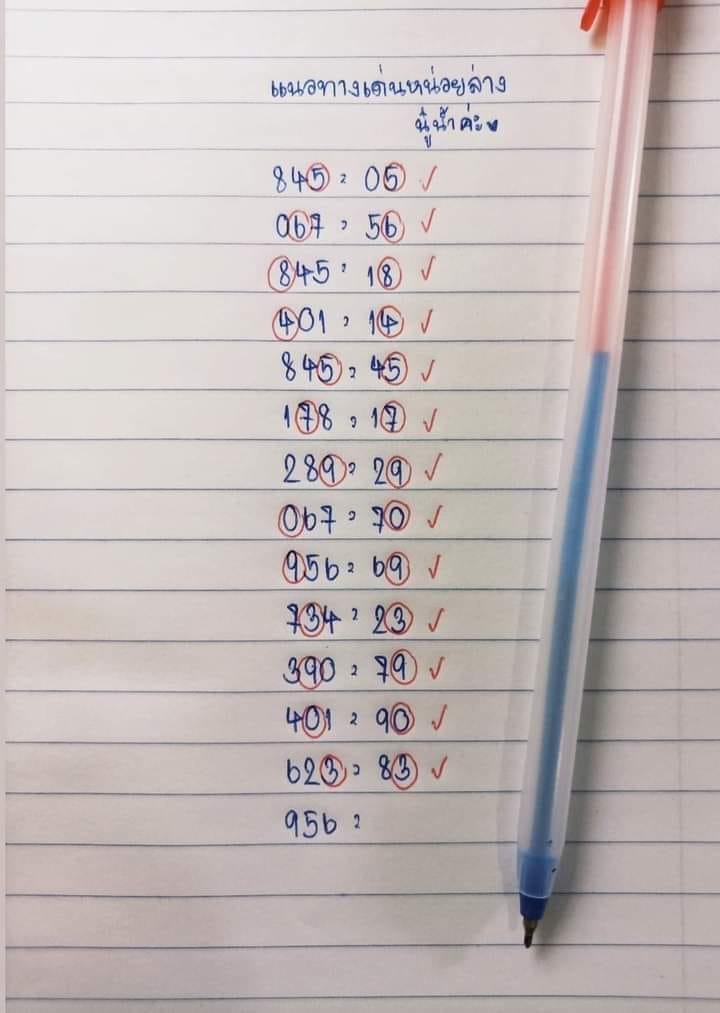 แนวทางเด่นหน่วยล่าง
นู๋น้ำค่ะ
845 = 05 ✓
067 = 56 ✓
845 = 18 ✓
401 = 14 ✓
845 = 45 ✓
178 = 17 ✓
289 = 29 ✓
067 = 70 ✓
956 = 69 ✓
734 = 23 ✓
390 = 79 ✓
401 = 90 ✓
623 = 83 ✓
956 =